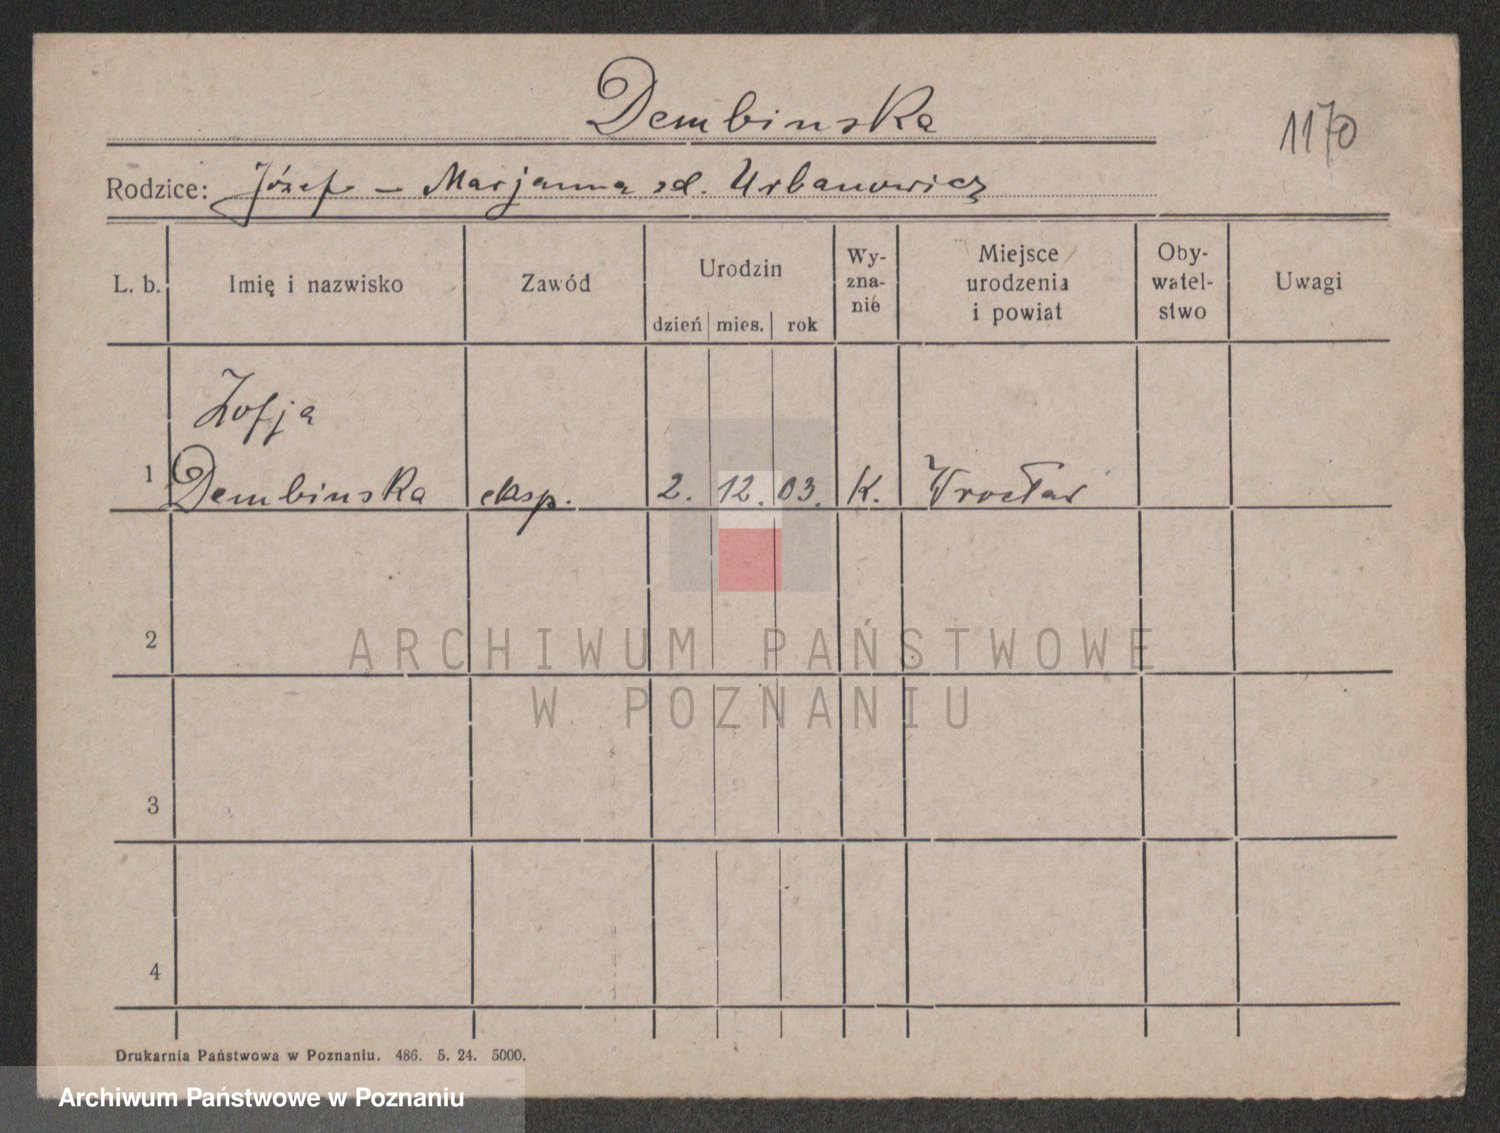 Dembinska
1170
Rodzice: Józef – Marjanna zd. Urbanowicz
L. b.
Imię i nazwisko
Zawód
Urodzin
dzień mies. rok
Wy-
zna-
nie
Miejsce
urodzenia
i powiat
Oby-
watel-
stwo
Uwagi
Zofja
1 Dembinska eksp. 2. 12. 03. K. Wrocław
2
3
4
ARCHIWUM PAŃSTWOWE
W POZNANIU
Drukarnia Państwowa w Poznaniu. 486. 5. 24. 5000.
Archiwum Państwowe w Poznaniu